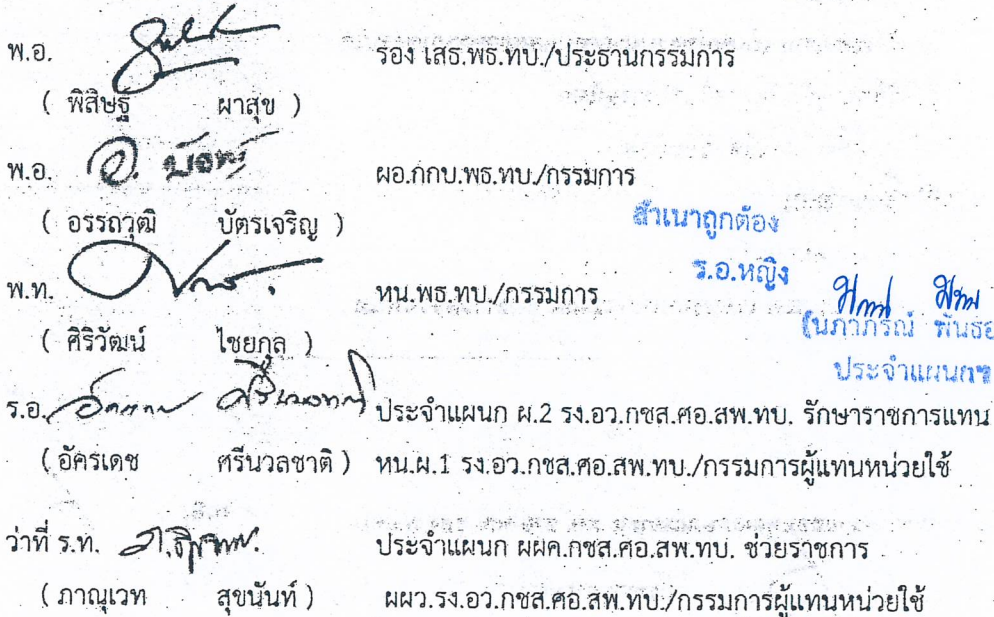 พ.อ. รอง เสธ.พธ.ทบ./ประธานกรรมการ
( พิสิษฐ์ ผาสุข )
พ.อ. อ. ผอ.กกบ.พธ.ทบ./กรรมการ
( อรรถวุฒิ บัตรเจริญ )
สำเนาถูกต้อง
ร.อ.หญิง
พ.ท. หน.พธ.ทบ./กรรมการ
(นภาภรณ์
( ศิริวัฒน์ ไชยกุล )
ประจำแผนก
ร.อ. ประจำแผนก ผ.2 รง.อว.กซส.ศอ.สพ.ทบ. รักษาราชการแทน
( อัครเดช ศรีนวลชาติ ) หน.ผ.1 รง.อว.กซส.ศอ.สพ.ทบ./กรรมการผู้แทนหน่วยใช้
ว่าที่ ร.ท. ประจำแผนก ผผค.กซส.ศอ.สพ.ทบ. ช่วยราชการ
( ภาณุเวท สุขนันท์ ) ผผว.รง.อว.กซส.ศอ.สพ.ทบ./กรรมการผู้แทนหน่วยใช้